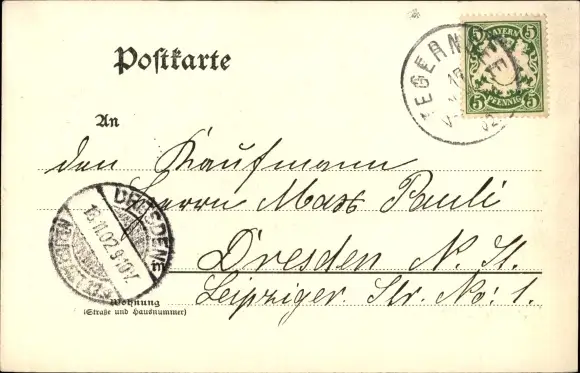 Postkarte
BAYERN
5 5
5 PFENNIG 5
TEGERN
An
den Kaufmann
Herrn Max Pauli
Dresden N. St.
Leipziger. Str. No: 1.
DRESDEN
16.11.02.9
Wohnung
(Straße und Hausnummer)